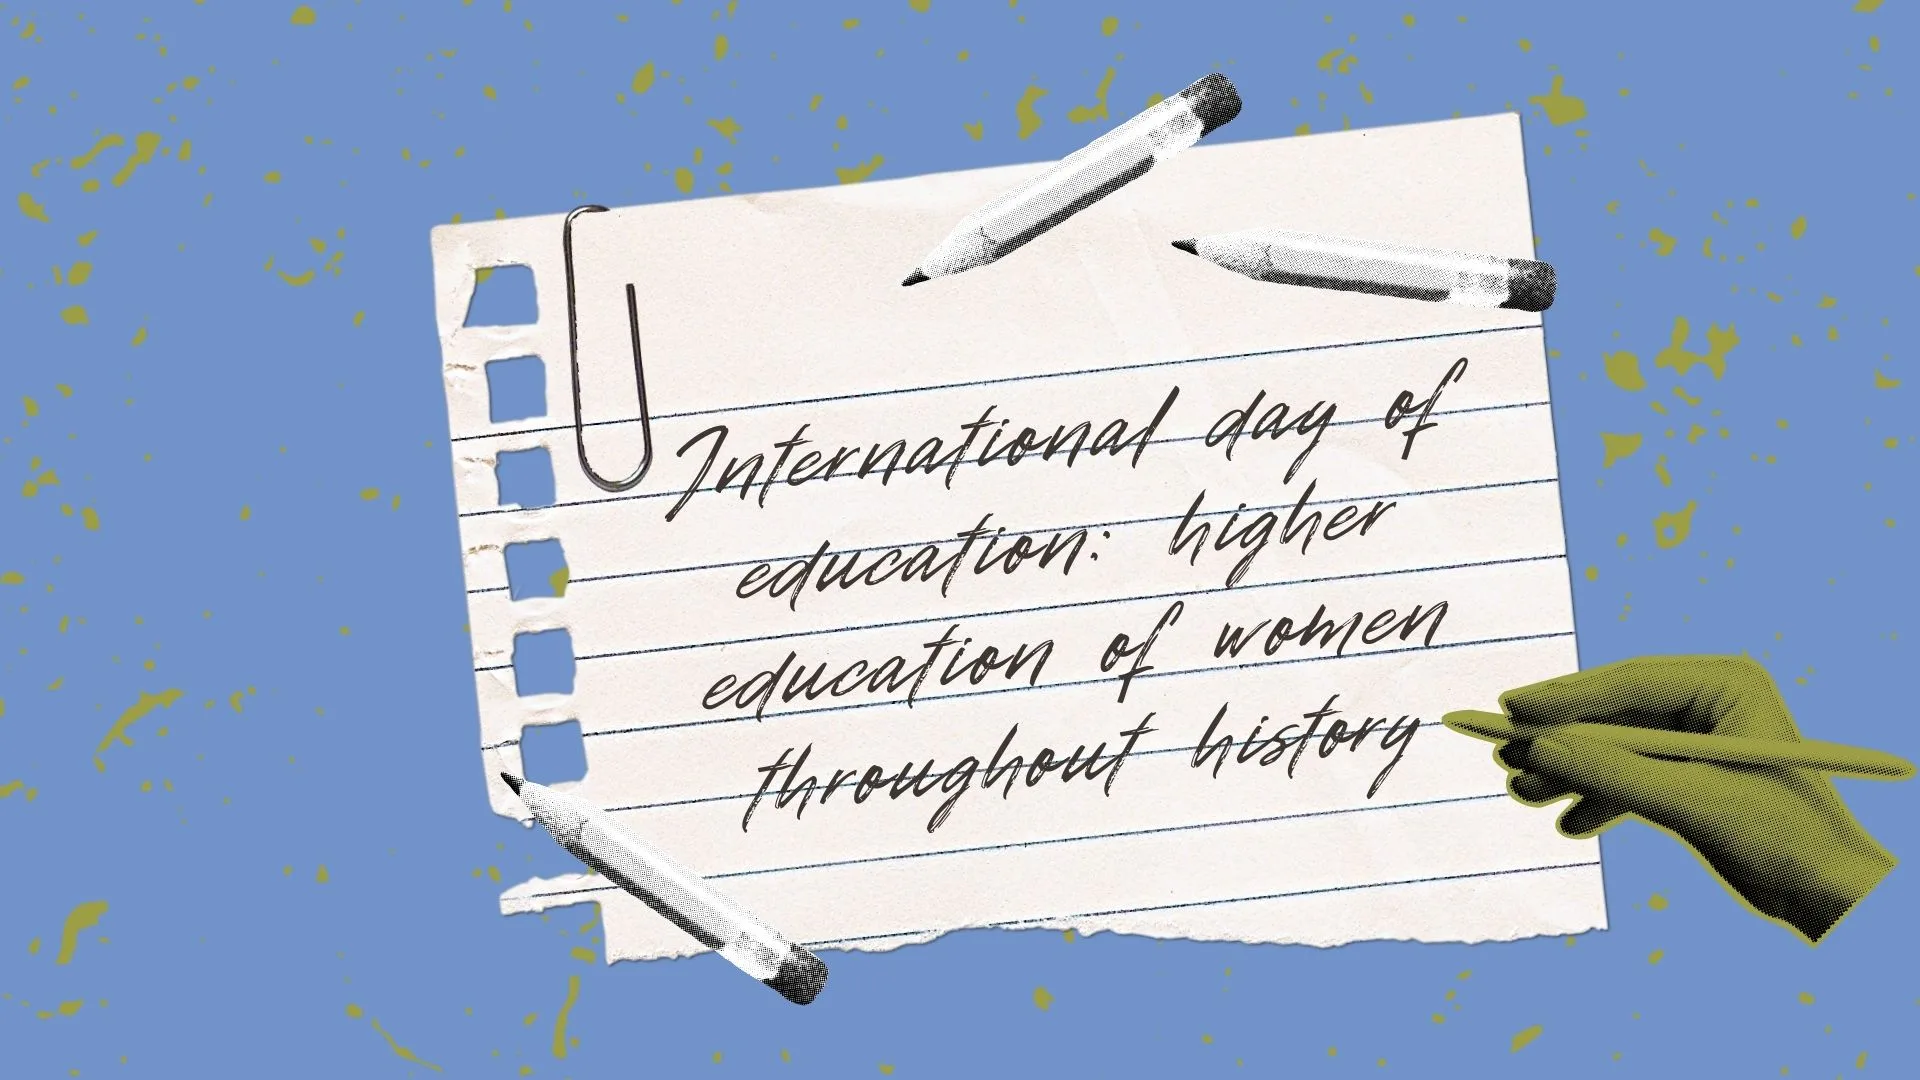 International day of
education: higher
education of women
throughout history